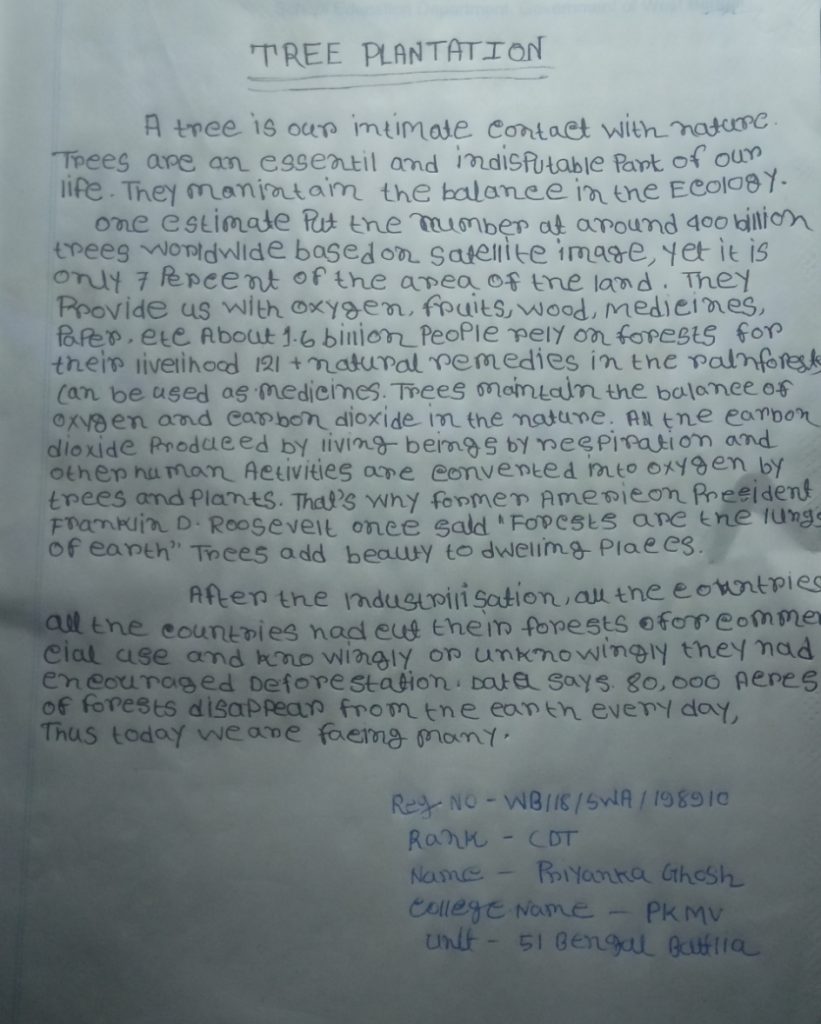 TREE PLANTATION
A tree is our intimate contact with nature.
Trees are an essentil and indisputable Part of our
life. They manintain the balance in the Ecology.
one estimate Put the number at around 400 billion
trees worldwide based on satellite image, yet it is
only 7 Percent of the area of the land. They
Provide us with oxygen, fruits, wood, medicines,
Paper, etc About 1.6 binion People rely on forests for
their livelihood 121 + natural remedies in the rainforests
can be used as medicines. Trees maintain the balance of
oxygen and carbon dioxide in the nature. All the carbon
dioxide Produced by living beings by respiration and
other human Activities are converted into oxygen by
trees and Plants. That's why former American President
Franklin D. Roosevelt once said "Forests are the lungs
of earth" Trees add beauty to dwelling Places.
After the industrilisation, all the countries
all the countries had cut their forests ofor commer
cial use and knowingly or unknowingly they had
encouraged Deforestation. Data says. 80,000 Acres
of forests disappear from the earth every day,
Thus today we are facing many.
Reg NO - WB/18/SWA/198910
Rank - CDT
Name - Priyanka Ghosh
College Name - PKMV
Unit - 51 Bengal